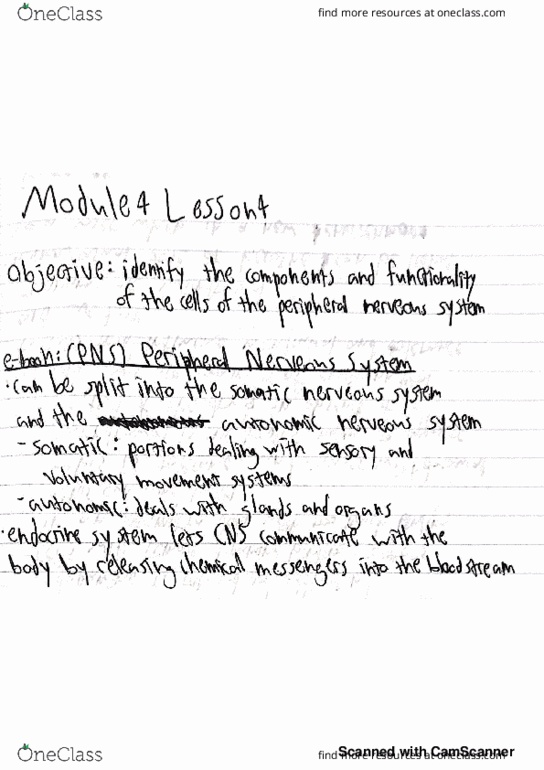 OneClass
find more resources at oneclass.com
Module 4 Lesson 4
objective: identify the components and functionality
of the cells of the peripheral nerveous system
e-book: (PNS) Peripheral Nerveous System
· can be split into the somatic nerveous system
and the autonomic nerveous system
- somatic: portions dealing with sensory and
voluntary movement systems
- autonomic: deals with glands and organs
· endocrine system lets CNS communicate with the
body by releasing chemical messengers into the bloodstream
OneClass
find more resources at oneclass.com
Scanned with CamScanner